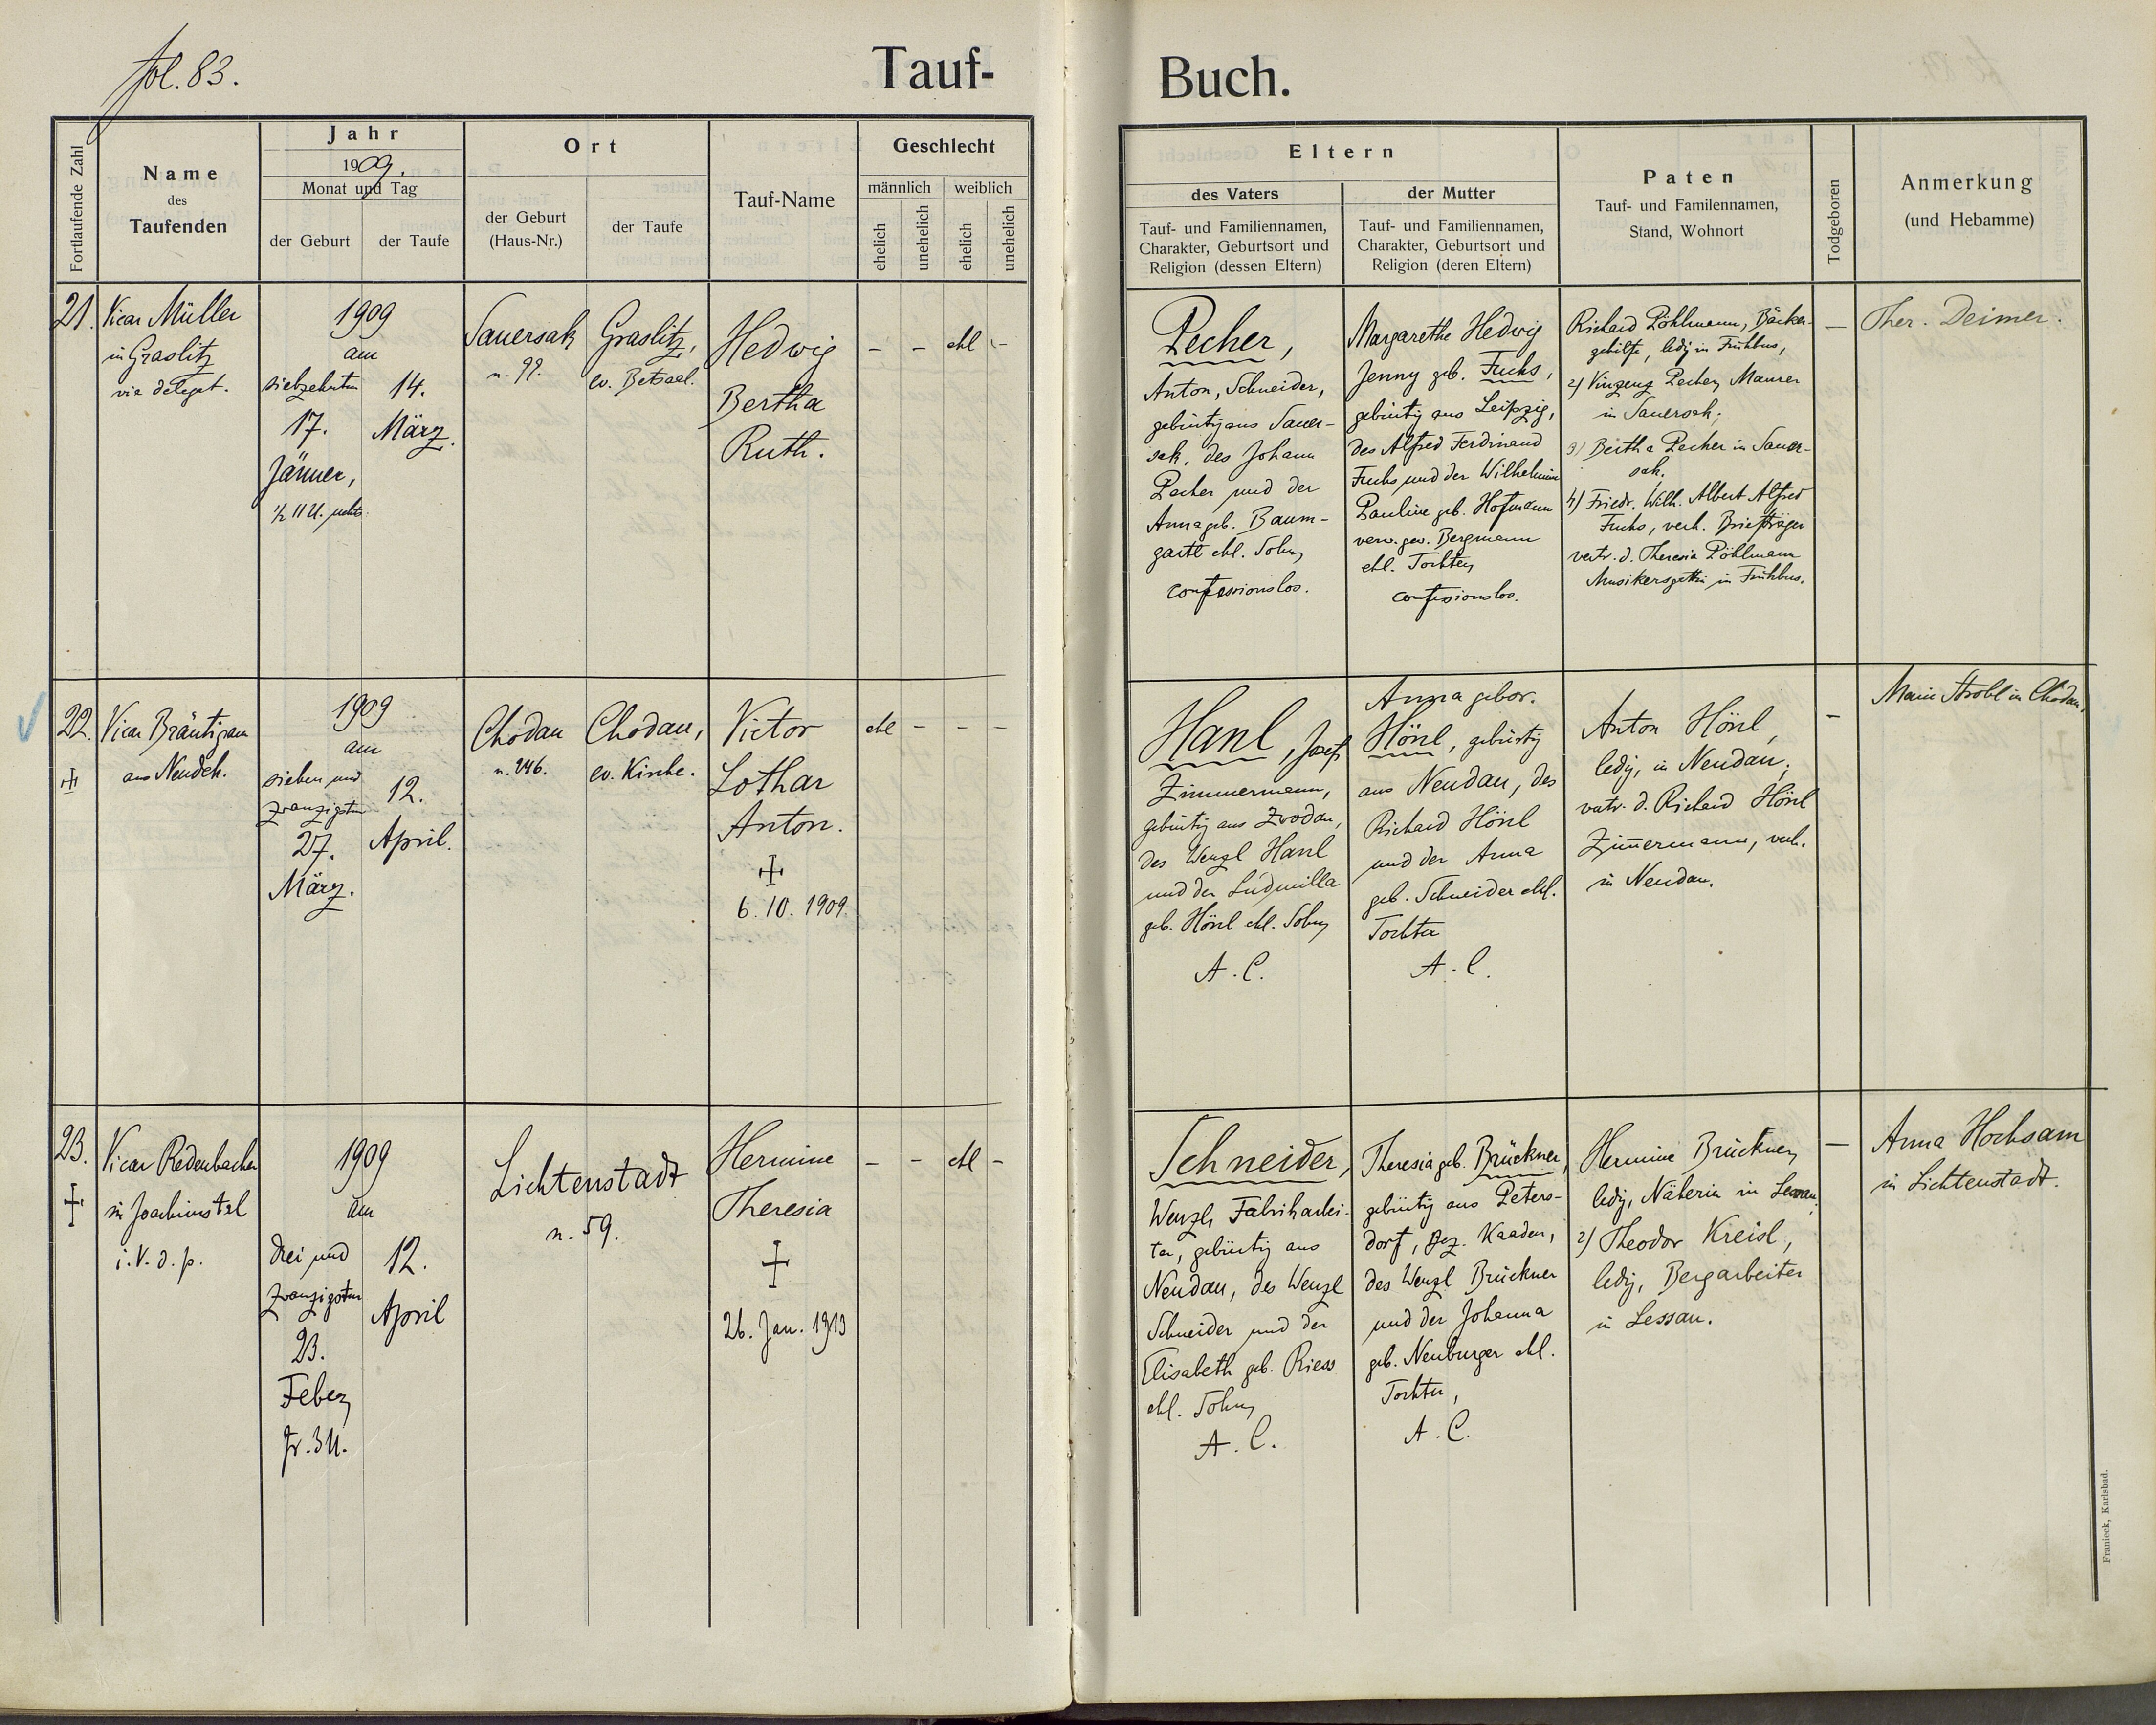 fol. 83.
Tauf-
Buch.
Fortlaufende Zahl
Name
des
Taufenden
Jahr
1909.
Monat und Tag
der Geburt
der Taufe
Ort
der Geburt
(Haus-Nr.)
der Taufe
Tauf-Name
Geschlecht
männlich
weiblich
ehelich
unehelich
ehelich
unehelich
Eltern
des Vaters
Tauf- und Familiennamen,
Charakter, Geburtsort und
Religion (dessen Eltern)
der Mutter
Tauf- und Familiennamen,
Charakter, Geburtsort und
Religion (deren Eltern)
Paten
Tauf- und Familennamen,
Stand, Wohnort
Todgeboren
Anmerkung
(und Hebamme)
21.
Vicar Müller
in Graslitz
vie deleget.
1909
am
siebzehnten
17.
Jänner,
½ 11 U. nchts.
14.
März.
Sauersak
n. 99.
Graslitz,
ev. Betsael.
Hedwig
Bertha
Ruth.
– – ehl –
Pecher,
Anton, Schneider,
gebürtig aus Sauer-
sak, des Johann
Pecher und der
Anna geb. Baum-
gartl ehl. Sohn,
confessionslos.
Margarethe Hedwig
Jenny geb. Fuchs,
gebürtig aus Leipzig,
des Alfred Ferdinand
Fuchs und der Wilhelmine
Pauline geb. Hofmann
verw. gew. Bergmann
ehl. Tochter,
confessionslos.
Richard Pöhlmann, Bäcker-
gehilfe, ledig in Frühbus,
2) Vinzenz Pecher, Maurer
in Sauersak;
3) Bertha Pecher in Sauer-
sak,
4) Friedr. Wilh. Albert Alfred
Fuchs, verh. Briefträger
vertr. d. Theresia Pöhlmann
Musikersgattin in Frühbus.
–
Ther. Deimer.
22.
Vicar Bräutigam
aus Neudek.
1909
am
sieben und
zwanzigsten
27.
März.
12.
April.
Chodau
n. 246.
Chodau,
ev. Kirche.
Victor
Lothar
Anton.
6. 10. 1909.
ehl – – –
Hanl, Josef,
Zimmermann,
gebürtig aus Zwodau,
des Wenzl Hanl
und der Ludmilla
geb. Hönl ehl. Sohn,
A. C.
Anna gebor.
Hönl, gebürtig
aus Neudau, des
Richard Hönl
und der Anna
geb. Schneider ehl.
Tochter
A. C.
Anton Hönl,
ledig, in Neudau;
vertr. d. Richard Hönl
Zimmermann, verh.
in Neudau.
–
Marie Strobl in Chodau.
23.
Vicar Redenbacher
in Joachimstal
i. V. d. p.
1909
am
drei und
zwanzigsten
23.
Feber,
fr. 3 U.
12.
April
Lichtenstadt
n. 59.
Hermine
Theresia
26. Jan. 1913
– – ehl –
Schneider,
Wenzl, Fabriksarbei-
ter, gebürtig aus
Neudau, des Wenzl
Schneider und der
Elisabeth geb. Riess
ehl. Sohn,
A. C.
Theresia geb. Brückner,
gebürtig aus Peters-
dorf, Bez. Kaaden,
des Wenzl Brückner
und der Johanna
geb. Neuburger ehl.
Tochter,
A. C.
Hermine Brückner,
ledig, Näherin in Lessau,
2) Theodor Kreisl,
ledig, Bergarbeiter
in Lessau.
–
Anna Hochsam
in Lichtenstadt.
Franieck, Karlsbad.